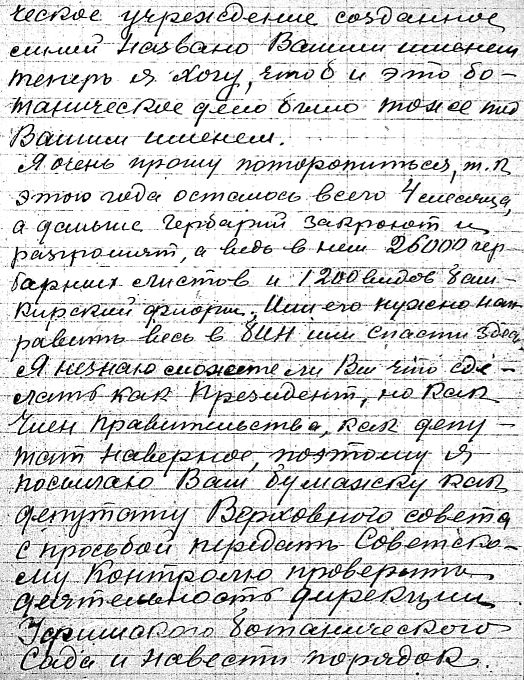 ческое учреждение созданное
мной названо Вашим именем
теперь я хочу, чтоб и это бо-
таническое дело было тоже под
Вашим именем.
Я очень прошу поторопиться, т.к
этого года осталось всего 4 месяца,
а дальше Гербарий закроют и
разгромят, а ведь в нем 26000 гер-
барных листов и 1200 видов баш-
кирской флоры. Или его нужно нап
равить весь в БИН или спасти здесь.
Я незнаю сможете ли Вы что сде-
лать как Президент, но как
член правительства, как депу-
тат наверное, поэтому я
посылаю Вам бумажку как
депутату Верховного совета
с просьбой передать Советско-
му Контролю проверить
деятельность дирекции
Уфимского ботанического
Сада и навести порядок.